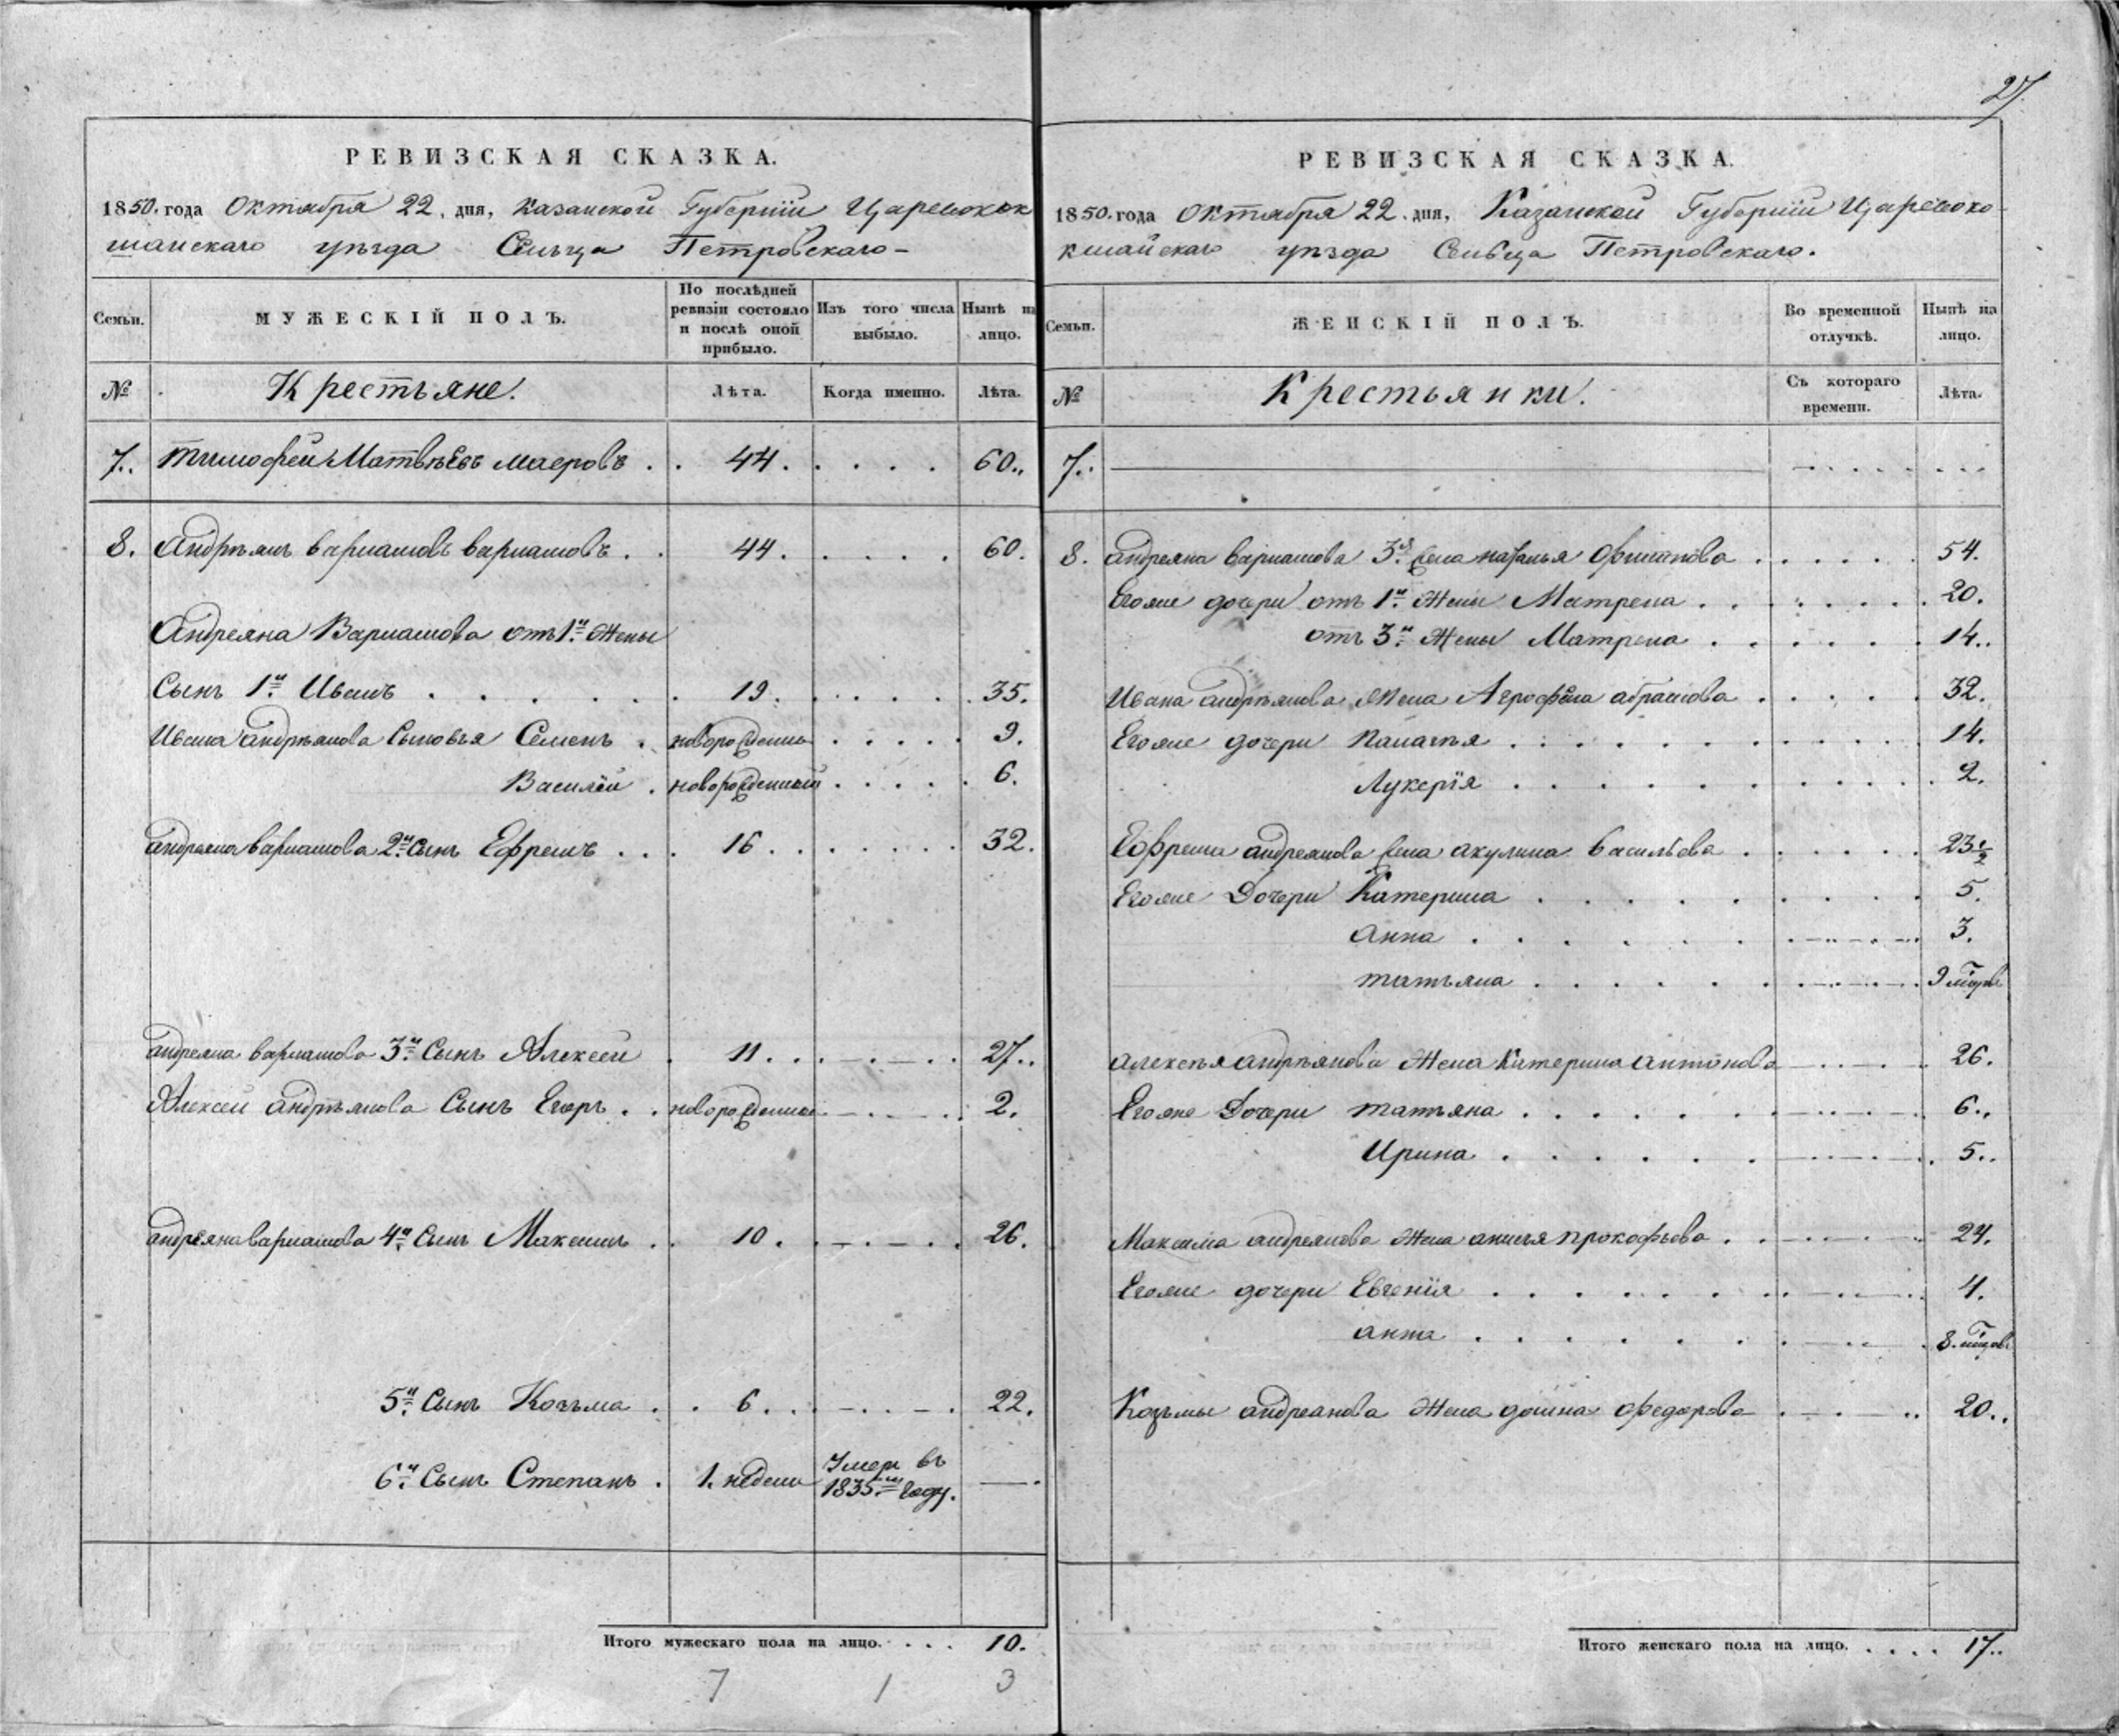 27.
РЕВИЗСКАЯ СКАЗКА.
1850. года Октября 22. дня, Казанской Губернiи Царевокок
шайскаго уѣзда Сельца Петровскаго
Семьи.
МУЖЕСКIЙ ПОЛЪ.
По послѣдней ревизiи состояло и послѣ оной прибыло.
Изъ того числа выбыло.
Нынѣ на лицо.
№ Крестьяне. Лѣта. Когда именно. Лѣта.
7. Тимофей Матвѣевъ 44. 60.
8. Андрѣянъ Варламовъ Варламовъ 44. 60.
Андреяна Варламова отъ 1й Жены
Сынъ 1й Иванъ 19. 35.
Ивана Андрѣянова Сыновья Семенъ новорожденны 9.
Василiй новорожденный 6.
Андреяна Варламова 2й Сынъ Ефремъ 16. 32.
Андреяна Варламова 3й Сынъ Алексей 11. 27.
Алексей Андрѣянова Сынъ Егоръ новорожденны 2.
Андреяна Варламова 4й Сынъ Максимъ 10. 26.
5й Сынъ Козьма 6. 22.
6й Сынъ Степанъ 1. недели Умеръ въ 1835мъ Году. —
Итого мужескаго пола на лицо. 10.
7 1 3
РЕВИЗСКАЯ СКАЗКА.
1850. года Октября 22. дня, Казанской Губернiи Царевоко-
кшайскаго уѣзда Сельца Петровскаго.
Семьи.
ЖЕНСКIЙ ПОЛЪ.
Во временной отлучкѣ.
Ныпѣ на лицо.
№ Крестьянки. Съ котораго времени. Лѣта.
7.
8. Андреяна Варламова 3я Жена Наталья 54.
Егоже дочери отъ 1й Жены Матрена 20.
отъ 3й Жены Матрена 14.
Ивана Андрѣянова Жена Агрофена Абрамова 32.
Егоже дочери 14.
Лукерiя 2.
Ефрема Андреянова Жена Акулина Васильева 23½
Егоже Дочери Катерина 5.
Анна 3.
Татьяна 9
Алексѣя Андрѣянова Жена Катерина Антонова 26.
Егоже Дочери Татьяна 6.
Ирина 5.
Максима Андреянова Жена Анисья Прокофьева 24.
Егоже дочери Евгенiя 4.
Анна 8.
Козьмы Андреанова Жена Домна Федорова 20.
Итого женскаго пола на лицо. 17.